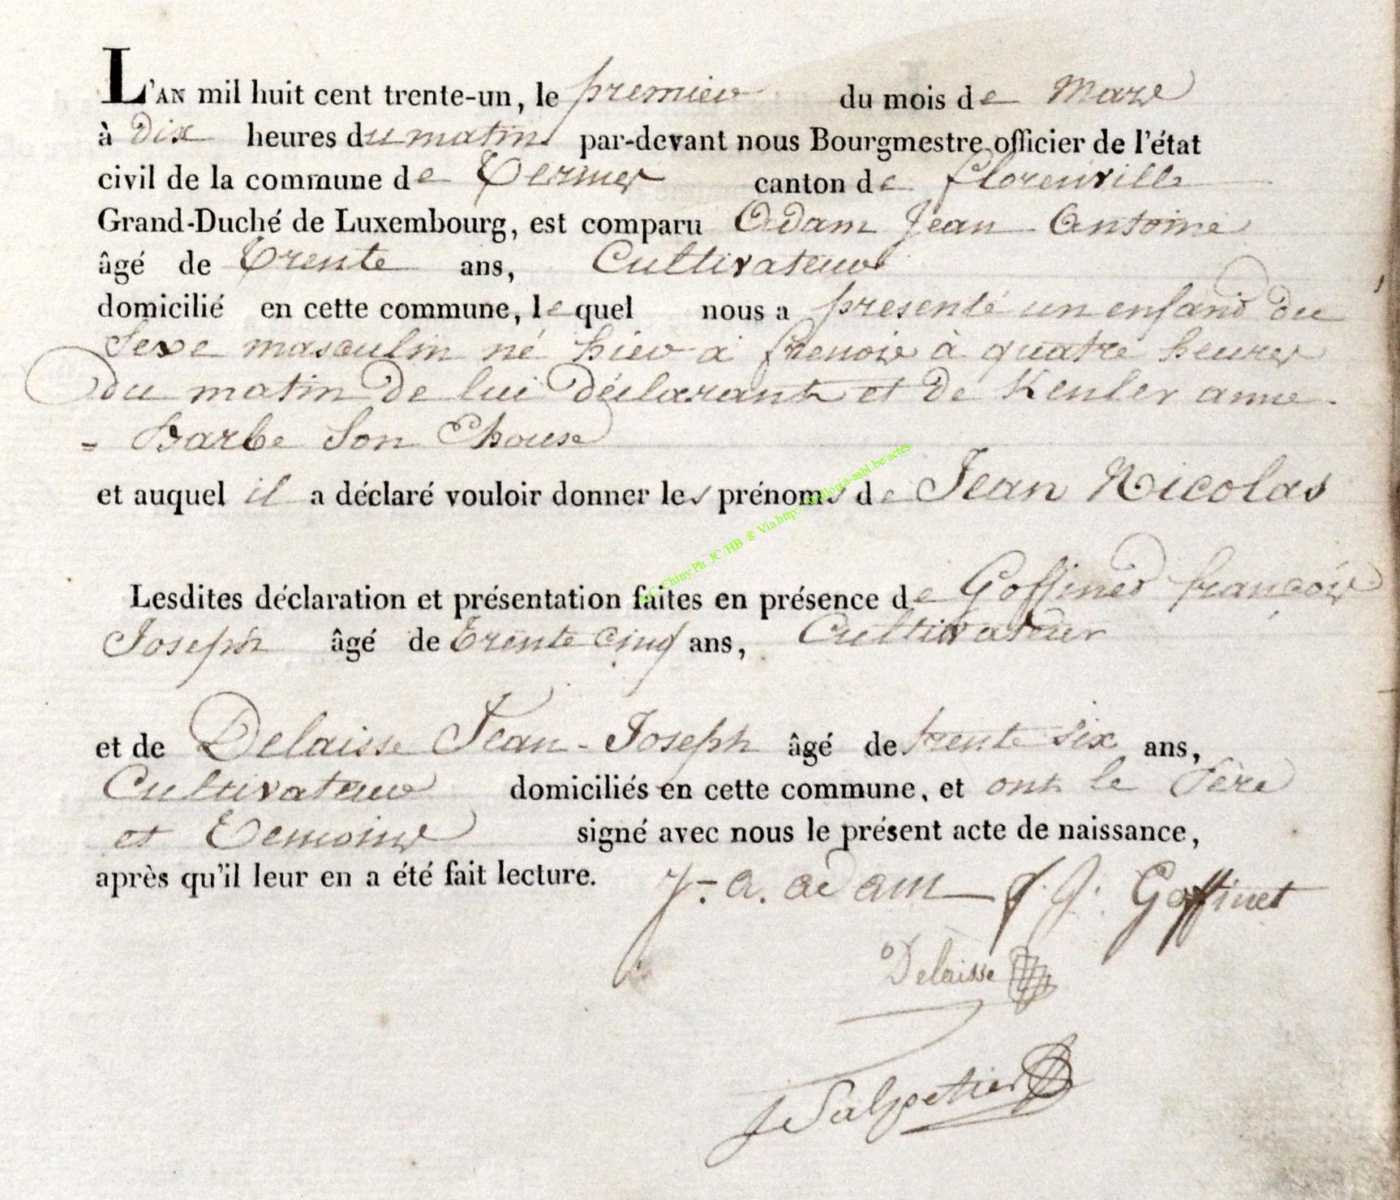 L'AN mil huit cent trente-un, le premier du mois de Mars
à dix heures du matin par-devant nous Bourgmestre officier de l'état
civil de la commune de Termes canton de florenville
Grand-Duché de Luxembourg, est comparu Adam Jean Antoine
âgé de trente ans, Cultivateur
domicilié en cette commune, lequel nous a presenté un enfand du
Sexe masculin né hier a frenois à quatre heures
du matin de lui déclarant et de Keuler anne
= Barbe Son Epouse
et auquel il a déclaré vouloir donner les prénoms de Jean Nicolas
Lesdites déclaration et présentation faites en présence de Goffined françois
Joseph âgé de trente cinq ans, Cultivateur
et de Delaisse Jean-Joseph âgé de trente six ans,
Cultivateur domiciliés en cette commune, et ont le Père
et Temoins signé avec nous le présent acte de naissance,
après qu'il leur en a été fait lecture. J-a. adam f. J. Goffinet
Delaisse
J Salpetier
Chiny Ph. JC HB & Via http